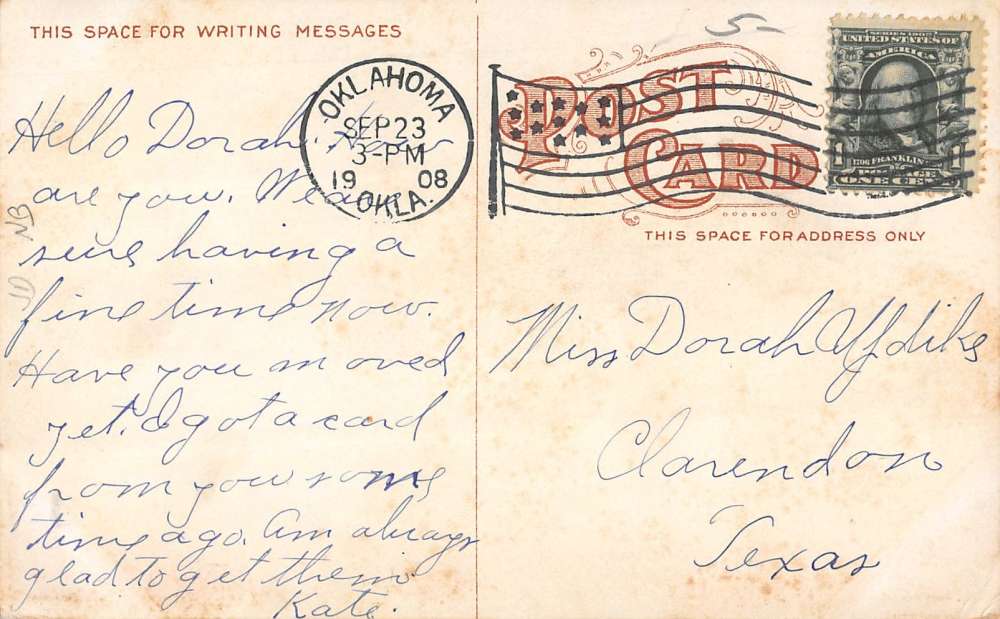 THIS SPACE FOR WRITING MESSAGES
Hello Dorah. How
are you. We are
sure having a
fine time now.
Have you moved
yet. I got a card
from you some
time ago. Am always
glad to get them.
Kate.
NB
OKLAHOMA
SEP 23
3-PM
1908
OKLA.
5-
POST
CARD
SERIES 1902
UNITED STATES OF
AMERICA
1706 FRANKLIN
POSTAGE
1 ONE CENT 1
THIS SPACE FOR ADDRESS ONLY
Miss Dorah Updike
Clarendon
Texas